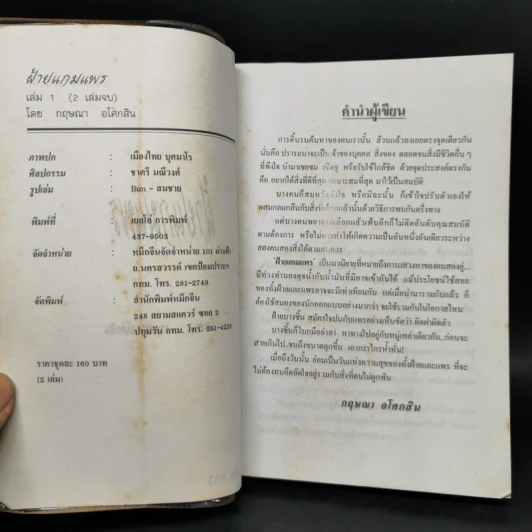 ฝ้ายแกมแพร
เล่ม 1 (2 เล่มจบ)
โดย กฤษณา อโศกสิน
ภาพปก : เมืองไทย บุศมาโร
ศิลปกรรม : ชาตรี มณีวงศ์
รูปเล่ม : Bun - สมชาย
พิมพ์ที่ : เยลโล่ การพิมพ์
437-9503
จัดจำหน่าย : หมึกจีนจัดจำหน่าย 101
ถ.นครสวรรค์ เขตป้อมปราบฯ
กทม. โทร. 281-2749
จัดพิมพ์ : สำนักพิมพ์หมึกจีน
248 สยามสแควร์ ซอย 2
ปทุมวัน กทม. โทร. 251-
ราคาชุดละ 160 บาท
(2 เล่ม)
คำนำผู้เขียน
การดิ้นรนค้นหาของคนเรานั้น ล้วนแล้วลงเอยตรงจุดเดียวกัน
นั่นคือ ปรารถนาจะเป็นเจ้าของบุคคล สิ่งของ ตลอดจนสิ่งมีชีวิตอื่น ๆ
ที่พึงใจ น่ามาเชยชม เชิดชู หรือรับใช้ใกล้ชิด ด้วยจุดประสงค์ตรงกัน
คือ อยากได้สิ่งที่ดีที่สุด เหมาะสมที่สุด มาไว้เป็นสมบัติ
บางคนก็สมหวังดังใจ หรือมิฉะนั้น ก็เข้าใจปรับตัวเองให้
ผสมกลมกลืนกับสิ่งที่ได้มาแล้วนั้นด้วยวิธีการพบกันครึ่งทาง
แต่บางคนพยายามเลือกแล้วเฟ้นอีกก็ไม่ติดอันดับคุณสมบัติ
ตามต้องการ หรือไม่อาจทำให้เกิดความเป็นอันหนึ่งอันเดียวระหว่าง
สองคนสองสิ่งได้ตาม
'ฝ้ายแกมแพร' เป็นนวนิยายที่หมายถึงการแสวงหาของคนสองคู่...
มีห่วงทำนองดุจน้ำกับน้ำมันที่มิอาจเข้ากันได้ แม้ประโยชน์ใช้สอย
ของทั้งฝ้ายและแพรอาจจะมีเท่าเทียมกัน แต่เมื่อนำมารวมกันแล้ว ก็
ต้องใช้สมองของนักออกแบบอย่างมากว่า จะใช้รวมกันในโอกาสไหน
ฝ้ายบางชิ้น สมัครใจปนกับแพรอย่างเห็นชัดว่า ผิดฝาผิดตัว
บางชิ้นก็ไบกมือย่าลา หาทางไปอยู่กับหมู่เหล่าเดียวกัน...ก่อนจะ
สายเกินไป...จนถึงขนาดลุกขึ้น เอากรรไกรห้ำหั่น!
เมื่อถึงวันนั้น ย่อมเป็นวันแห่งความสุขของทั้งฝ้ายและแพร ที่จะ
ไม่ต้องทนอึดอัดใจอยู่ร่วมกับสิ่งที่ตนไม่ผูกพัน
กฤษณา อโศกสิน